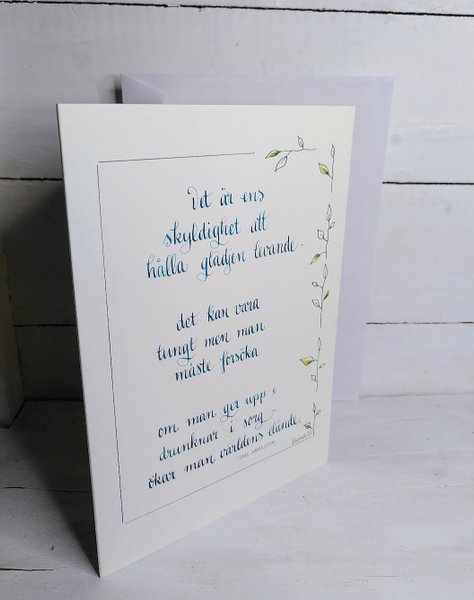 Det är ens
skyldighet att
hålla glädjen levande -
det kan vara
tungt men man
måste försöka
om man ger upp &
drunknar i sorg -
ökar man världens elände.